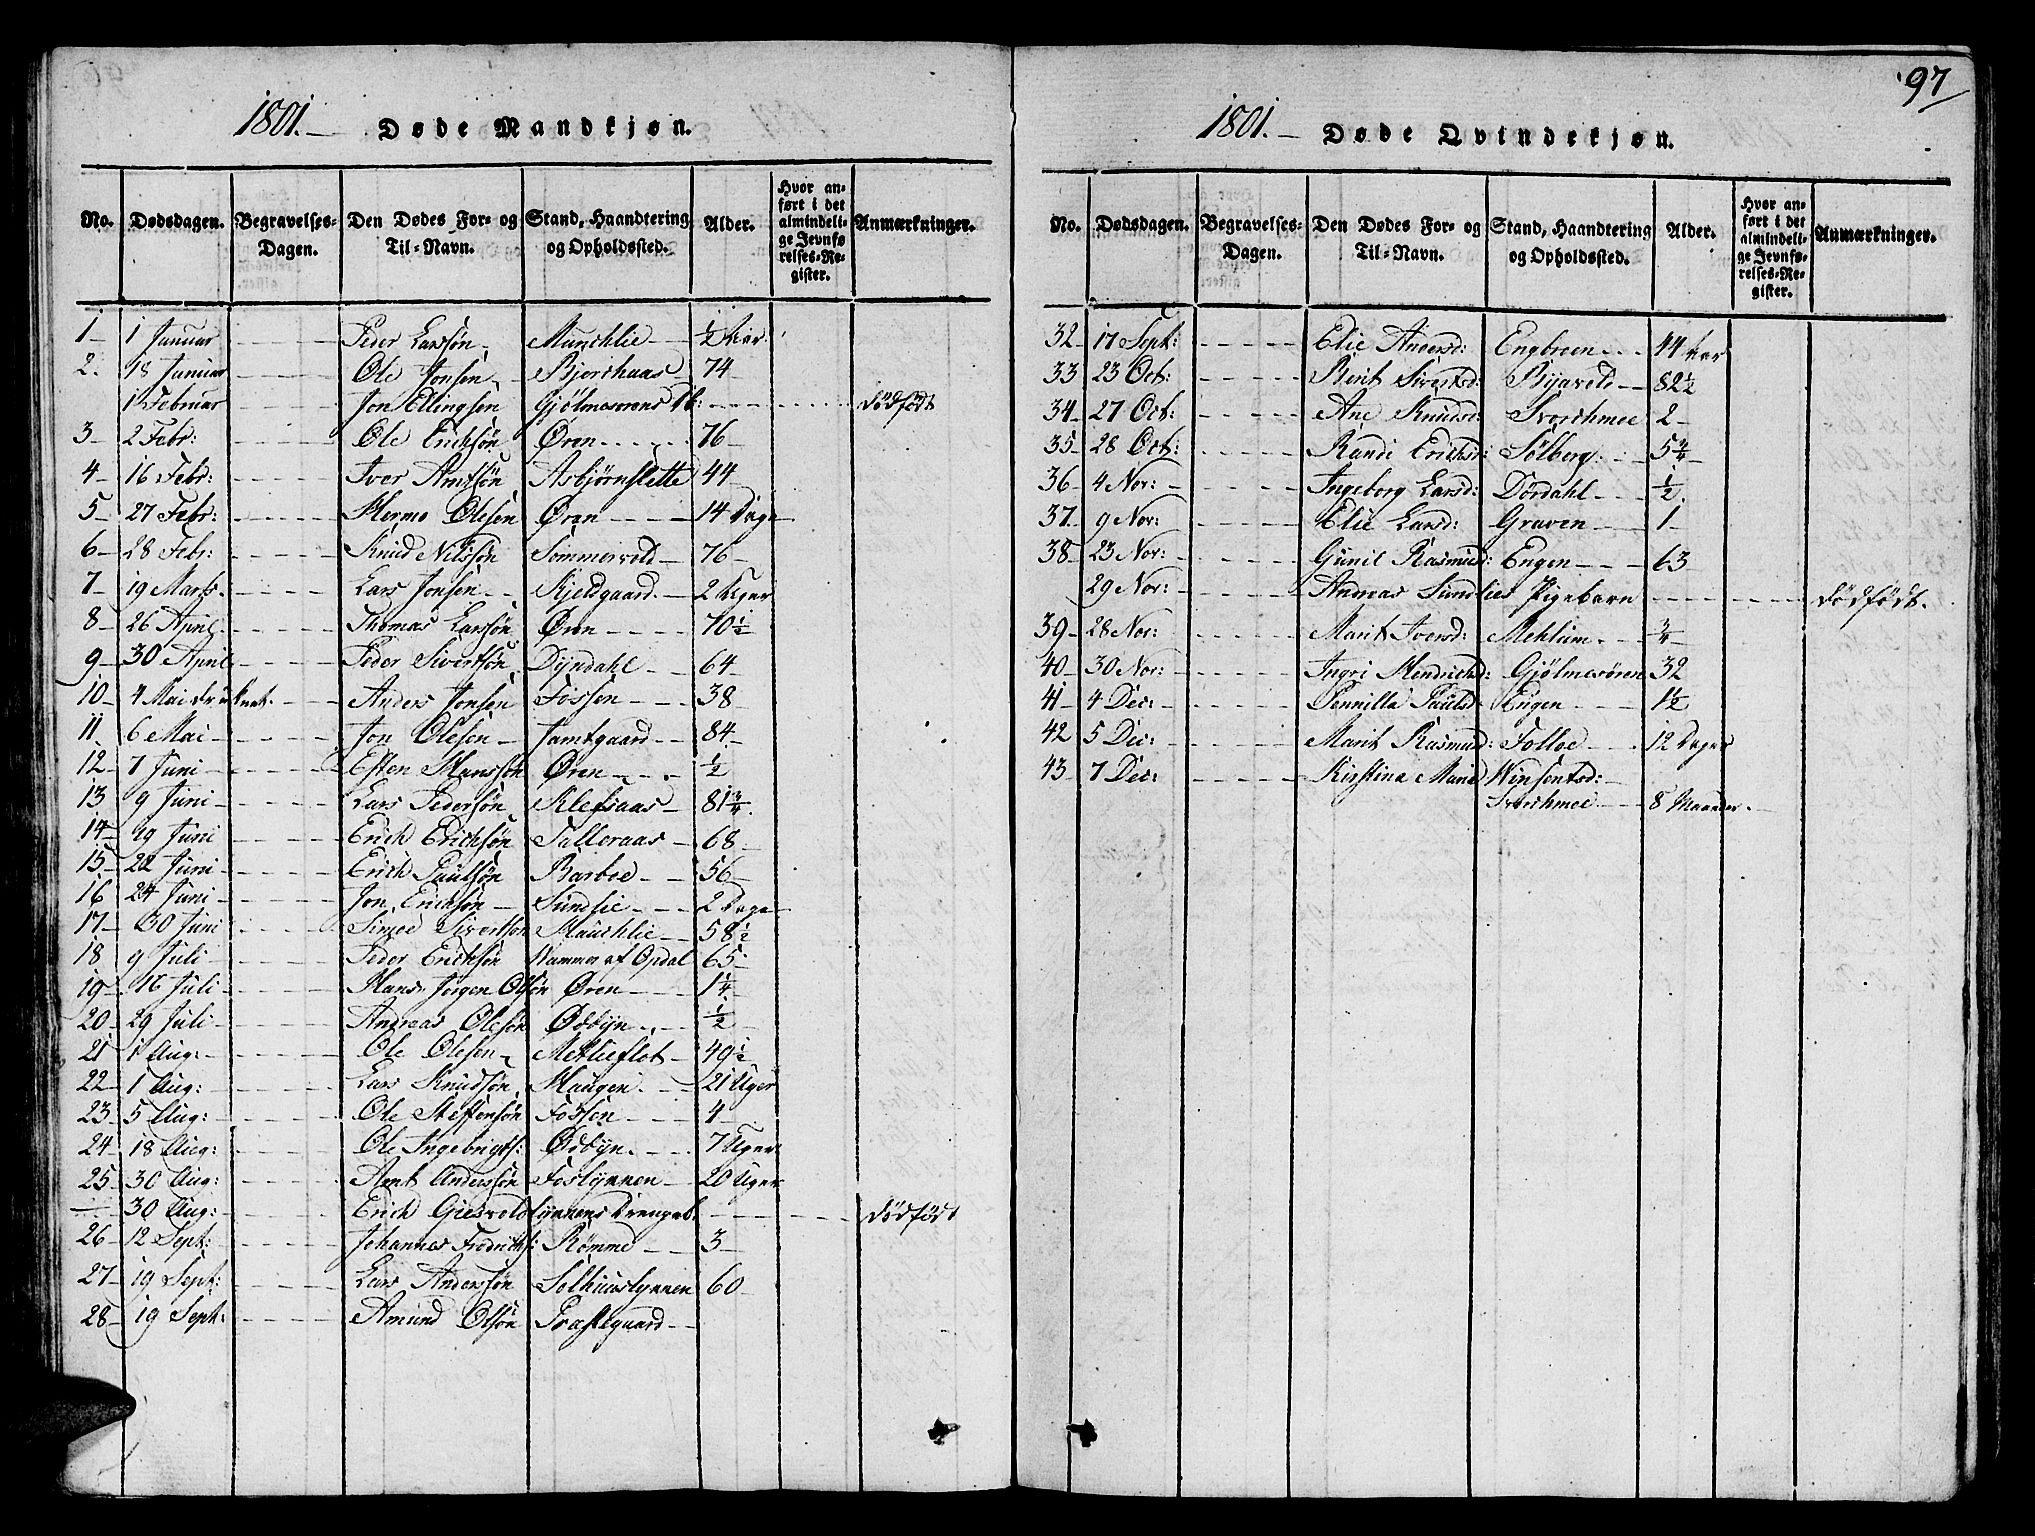 1801. Døde Mandkjøn.
No. Dødsdagen. Begravelses-Dagen. Den Dødes For- og Til-Navn. Stand, Haandtering og Opholdssted. Alder. Hvor anført i det almindelige Jevnførelses-Register. Anmærkninger.
1 1 Januar Peder Larsøn Munchlie ½ Aar
2. 18 Januar Ole Jonsen Bjerchaas 74
1 Februar Jon Ellingsen Gjølmesørens dødfødt
3 2 Febr: Ole Erichsøn Øren 76
4 16 Febr: Iver Arntsøn Asbjørnslette 44
5 27 Febr: Hermo Olesen Øren 14 Dage
6 28 Febr: Knud Nilssøn Sommervold 76
7 19 Marts Lars Jonsen Kjeldgaard 2 Uger
8 26 April Thomas Larsøn Øren 70½
9 30 April Peder Sivertsøn Dyndahl 64
10 4 Mai druknet Anders Jonsen Fossen 38
11. 6 Mai Jon Olesen Jamtgaard 84
12 7 Juni Esten Hanssøn Øren ½
13 9 Juni Lars Pedersøn Klefsaas 81¾
14 19 Juni Erich Erichsøn Talleraas 68
15 22 Juni Erich Paulsøn Barboe 56
16 24 Juni Jon Erichsøn Sundlie 2 Dage
17 30 Juni Simoe Sivertsøn Munchlie 58½
18 9 Juli Peder Erichsøn Wammer af Opdal 65
19 16 Juli Hans Jørgen Olsøn Øren 1¼
20 29 Juli Andreas Olesøn Oddyn ½
21 1 Aug: Ole Olesen Metlieflot 49½
22 1 Aug: Lars Knudsøn Haugen 21 Uger
23 5 Aug: Ole Steffensøn Fossen 4
24 18 Aug: Ole Ingebrigts: Oddyn 7 Uger
25 30 Aug: Arnt Anderssøn Foslynnen 20 Uger
30 Aug: Erich Gjesvoldlynnens Drengeb: dødfødt
26 12 Sept: Johannes Fredrichs: Rømme 3
27 19 Sept: Lars Anderssøn Solhuuslynnen 60
28 19 Sept: Amund Olsøn Præstegaard
97
1801. Døde Qvindekjøn.
No. Dødsdagen. Begravelses-Dagen. Den Dødes For- og Til-Navn. Stand, Haandtering og Opholdssted. Alder. Hvor anført i det almindelige Jevnførelses-Register. Anmærkninger.
32 17 Sept: Elie Andersd: Engbroen 44 Aar
33 23 Oct: Berit Sivertsd: Byavold 82½
34 27 Oct: Ane Knudsd: Svorchmoe 2
35 28 Oct: Randi Erichsd: Solberg 5¾
36 4 Nov: Ingeborg Larsd: Dørdahl ½
37 9 Nov: Elie Larsd: Graven 1
38 23 Nov: Gunil Rasmusd: Engen 63
29 Nov: Andreas Sundlies Pigebarn dødfødt.
39 28 Nov: Marit Iversd: Mehlum ¾
40 30 Nov: Ingri Hendrichsd: Gjølmesøren 32
41 4 Dec: Pernilla Paulsd: Engen 1½
42 5 Dec: Marit Rasmusd: Solloe 12 Dager
43 7 Dec: Kirstina Marie Winsentsd:
Svorchmoe 8 Maaneder